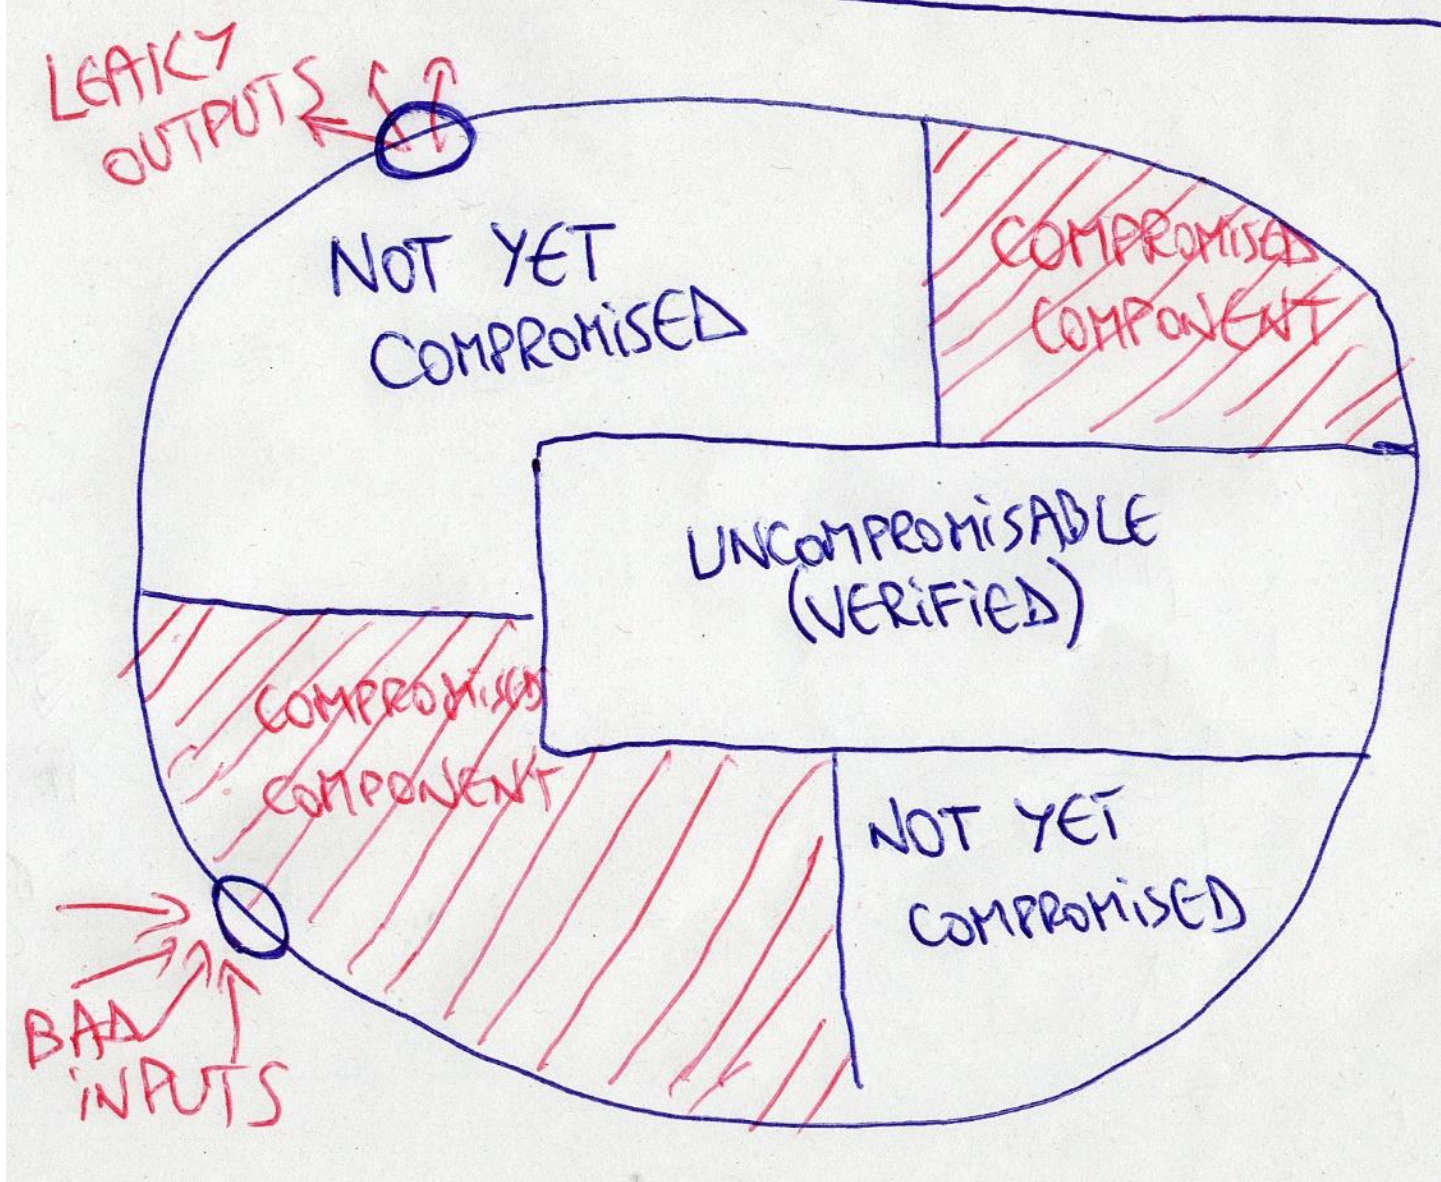 LEAKY
OUTPUTS
NOT YET
COMPROMISED
COMPROMISED
COMPONENT
UNCOMPROMISABLE
(VERIFIED)
COMPROMISED
COMPONENT
NOT YET
COMPROMISED
BAD
INPUTS